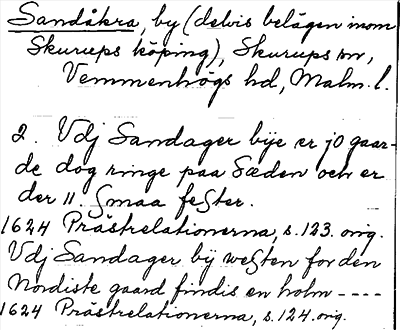 Sandåkra, by (delvis belägen inom
Skurups köping), Skurups sn,
Vemmenhögs hd, Malm. l.
2. Vdj Sandager bije er jo gaar-
de dog ringe paa Sæden och er
der 11. Smaa feSter.
1624 Prästrelationerna, s. 123. orig.
Vdj Sandager bÿ weSten for den
Nordiste gaard findis en holm ----
1624 Prästrelationerna, s. 124. orig.